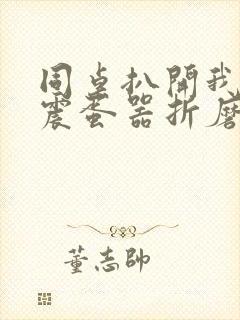 同桌扒開我
震蛋器折磨
董志帥